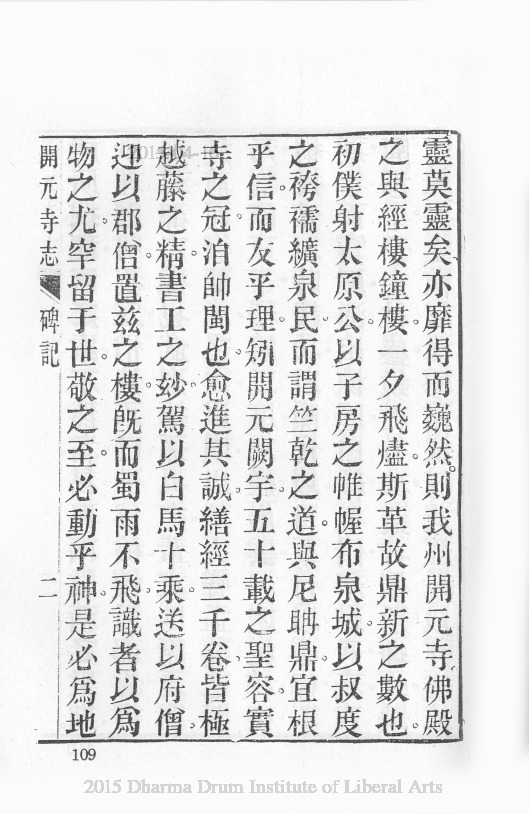 靈莫靈矣亦靡得而巍然。則我州開元寺佛殿
之與經樓鐘樓。一夕飛燼。斯革故鼎新之數也。
初僕射太原公。以子房之帷幄布泉城。以叔度
之袴襦纊泉民。而謂竺乾之道。與尼聃鼎。宜根
乎信。而友乎理。矧開元闕宇。五十載之聖容。實
寺之冠。洎帥閩也。愈進其誠。繕經三千卷。皆極
越藤之精。書工之妙。駕以白馬十乘。送以府僧。
迎以郡僧。置茲之樓。旣而蜀雨不飛。識者以爲
物之尤。罕留于世。敬之至。必動乎神。是必爲地
開元寺志 碑記 二
109
2015 Dharma Drum Institute of Liberal Arts